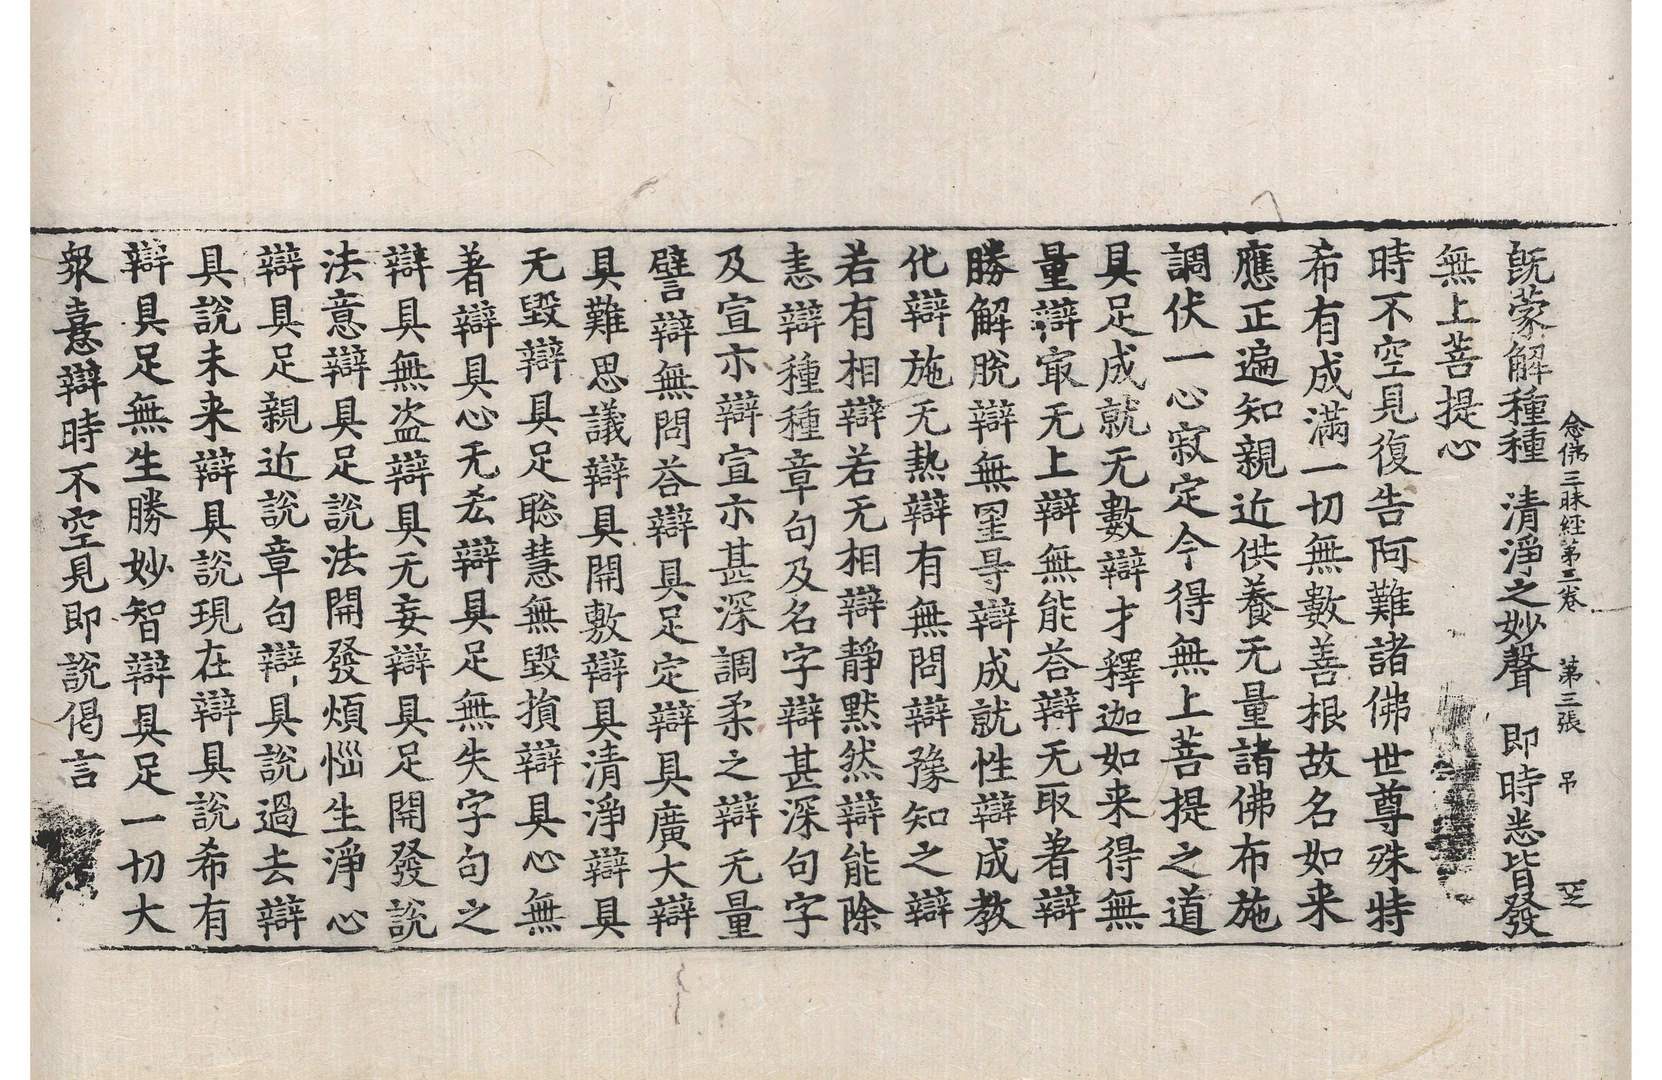 既蒙解種種 清淨之妙聲 即時悉皆發
念佛三昧經第三卷 第三張 弔
無上菩提心
時不空見復告阿難諸佛世尊殊特
希有成滿一切無數善根故名如来
應正遍知親近供養无量諸佛布施
調伏一心寂定今得無上菩提之道
具足成就无數辯才釋迦如来得無
量辯㝡无上辯無能荅辯无取著辯
勝解脫辯無罣导辯成就性辯成教
化辯施无热辯有無問辯豫知之辯
若有相辯若无相辯靜默然辯能除
恚辯種種章句及名字辯甚深句字
及宣示辯宣示甚深調柔之辯无量
譬辯無問荅辯具足定辯具廣大辯
具難思議辯具開敷辯具清淨辯具
无毀辯具足聡慧無毀損辯具心無
著辯具心无㤀辯具足無失字句之
辯具無盗辯具无妄辯具足開發說
法意辯具足說法開發煩惱生淨心
辯具足親近說章句辯具說過去辯
具說未来辯具說現在辯具說希有
辯具足無生勝妙智辯具足一切大
衆憙辯時不空見即說偈言